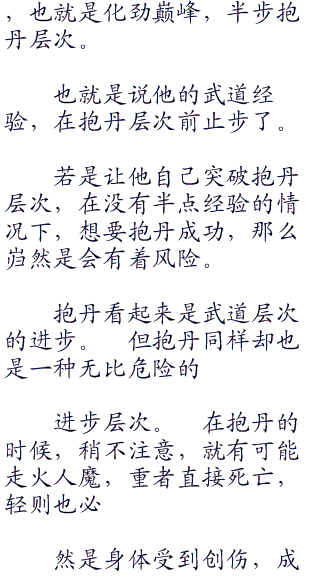 ，也就是化劲巅峰，半步抱
丹层次。
也就是说他的武道经
验，在抱丹层次前止步了。
若是让他自己突破抱丹
层次，在没有半点经验的情
况下，想要抱丹成功，那么
岿然是会有着风险。
抱丹看起来是武道层次
的进步。　但抱丹同样却也
是一种无比危险的
进步层次。　在抱丹的
时候，稍不注意，就有可能
走火人魔，重者直接死亡，
轻则也必
然是身体受到创伤，成